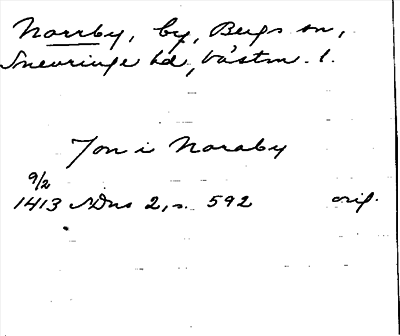 Norrby, by, Bergs sn,
Snevringe hd, Västm. l.
Jon i Noraby
9/2
1413 SDns 2, s. 592 orig.